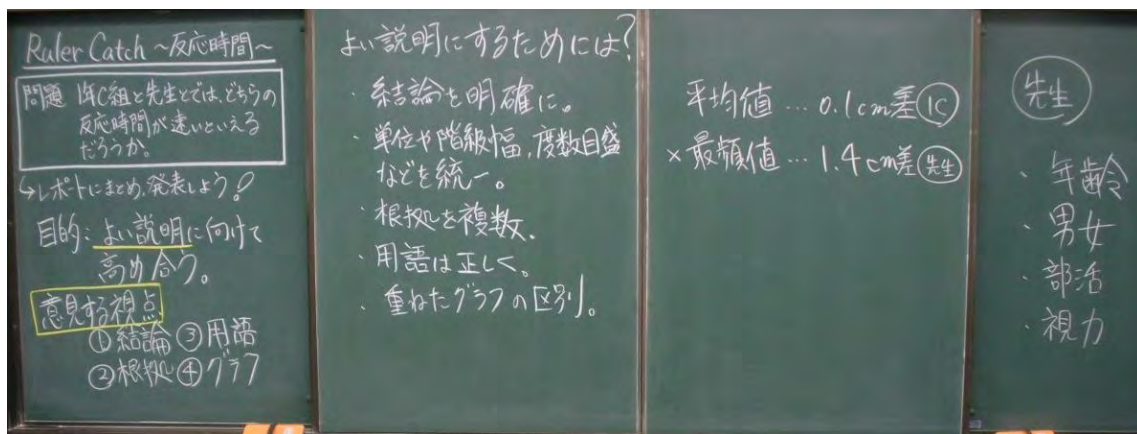 Ruler Catch ~反応時間~
問題 1年C組と先生とでは、どちらの
反応時間が速いといえる
だろうか。
↳レポートにまとめ、発表しよう!
目的:よい説明に向けて
高め合う。
意見する視点
①結論 ③用語
②根拠 ④グラフ
よい説明にするためには?
・結論を明確に。
・単位や階級幅,度数目盛
などを統一。
・根拠を複数。
・用語は正しく。
・重ねたグラフの区別。
平均値…0.1cm差 1C
×最頻値…1.4cm差 先生
先生
・年齢
・男女
・部活
・視力